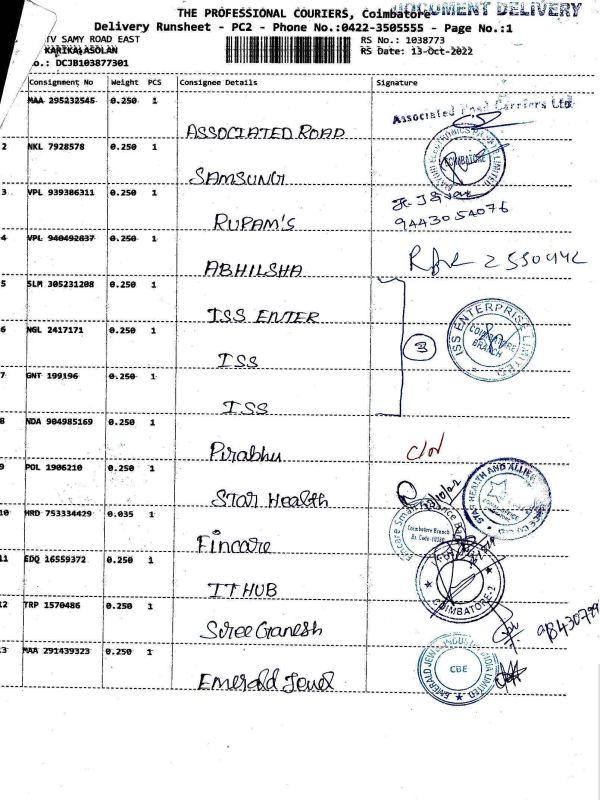 THE PROFESSIONAL COURIERS, Coimbatore
DOCUMENT DELIVERY
Delivery Runsheet - PC2 - Phone No.:0422-3505555 - Page No.:1
TV SAMY ROAD EAST
RS No.: 1038773
KARIKALASOLAN
RS Date: 13-Oct-2022
o.: DCJB103877301
Consignment No Weight PCS Consignee Details Signature
MAA 295232545 0.250 1 ASSOCIATED ROAD Associated Road Carriers Ltd
2 NKL 7928578 0.250 1 SAMSUNG COIMBATORE
3 VPL 939386311 0.250 1 RUPAM'S 9443054076
4 VPL 940492837 0.250 1 ABHILSHA
5 SLM 305231208 0.250 1 ISS ENTER
6 NGL 2417171 0.250 1 ISS 3 ISS ENTERPRISE LIMITED COIMBATORE BRANCH
7 GNT 199196 0.250 1 ISS
8 NDA 904985169 0.250 1 Pirabhu
9 POL 1906210 0.250 1 Star Health STAR HEALTH AND ALLIED
10 HRD 753334429 0.035 1 Fincare Coimbatore Branch
11 EDQ 16559372 0.250 1 IT HUB COIMBATORE
12 TRP 1570486 0.250 1 Sree Ganesh
13 MAA 291439323 0.250 1 Emerald Jewel CBE